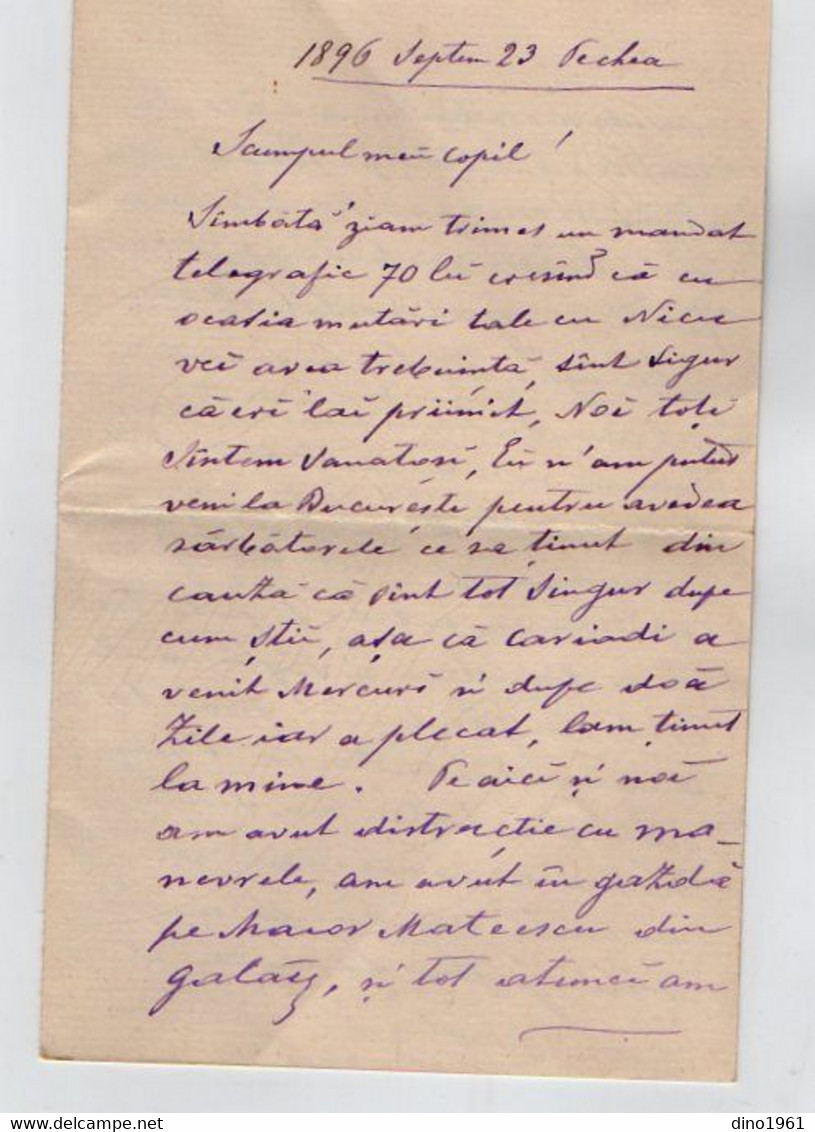 1896 Septem 23 Pechea
Scumpul meŭ copil!
Sîmbătă ziam trimes un mandat
telegrafic 70 lei cresînd că cu
ocasia mutări tale cu Nicu
vei avea trebuință, sînt sigur
că eri laĭ priimit, Noĭ toți
sîntem sanatosi, Eŭ n'am putut
veni la Bucureștĭ pentru avedea
sărbătorele ce sa ținut din
cauză că sînt tot singur dupe
cum știi, așa că cariadi a
venit Mercurĭ si dupe doă
zile iar a plecat, lam ținut
la mine. Pe aicĭ si noĭ
am avut distracție cu ma-
nevrele, am avut în gazdă
pe Maior Mateescu din
galați, si tot atuncĭ am
dino1961